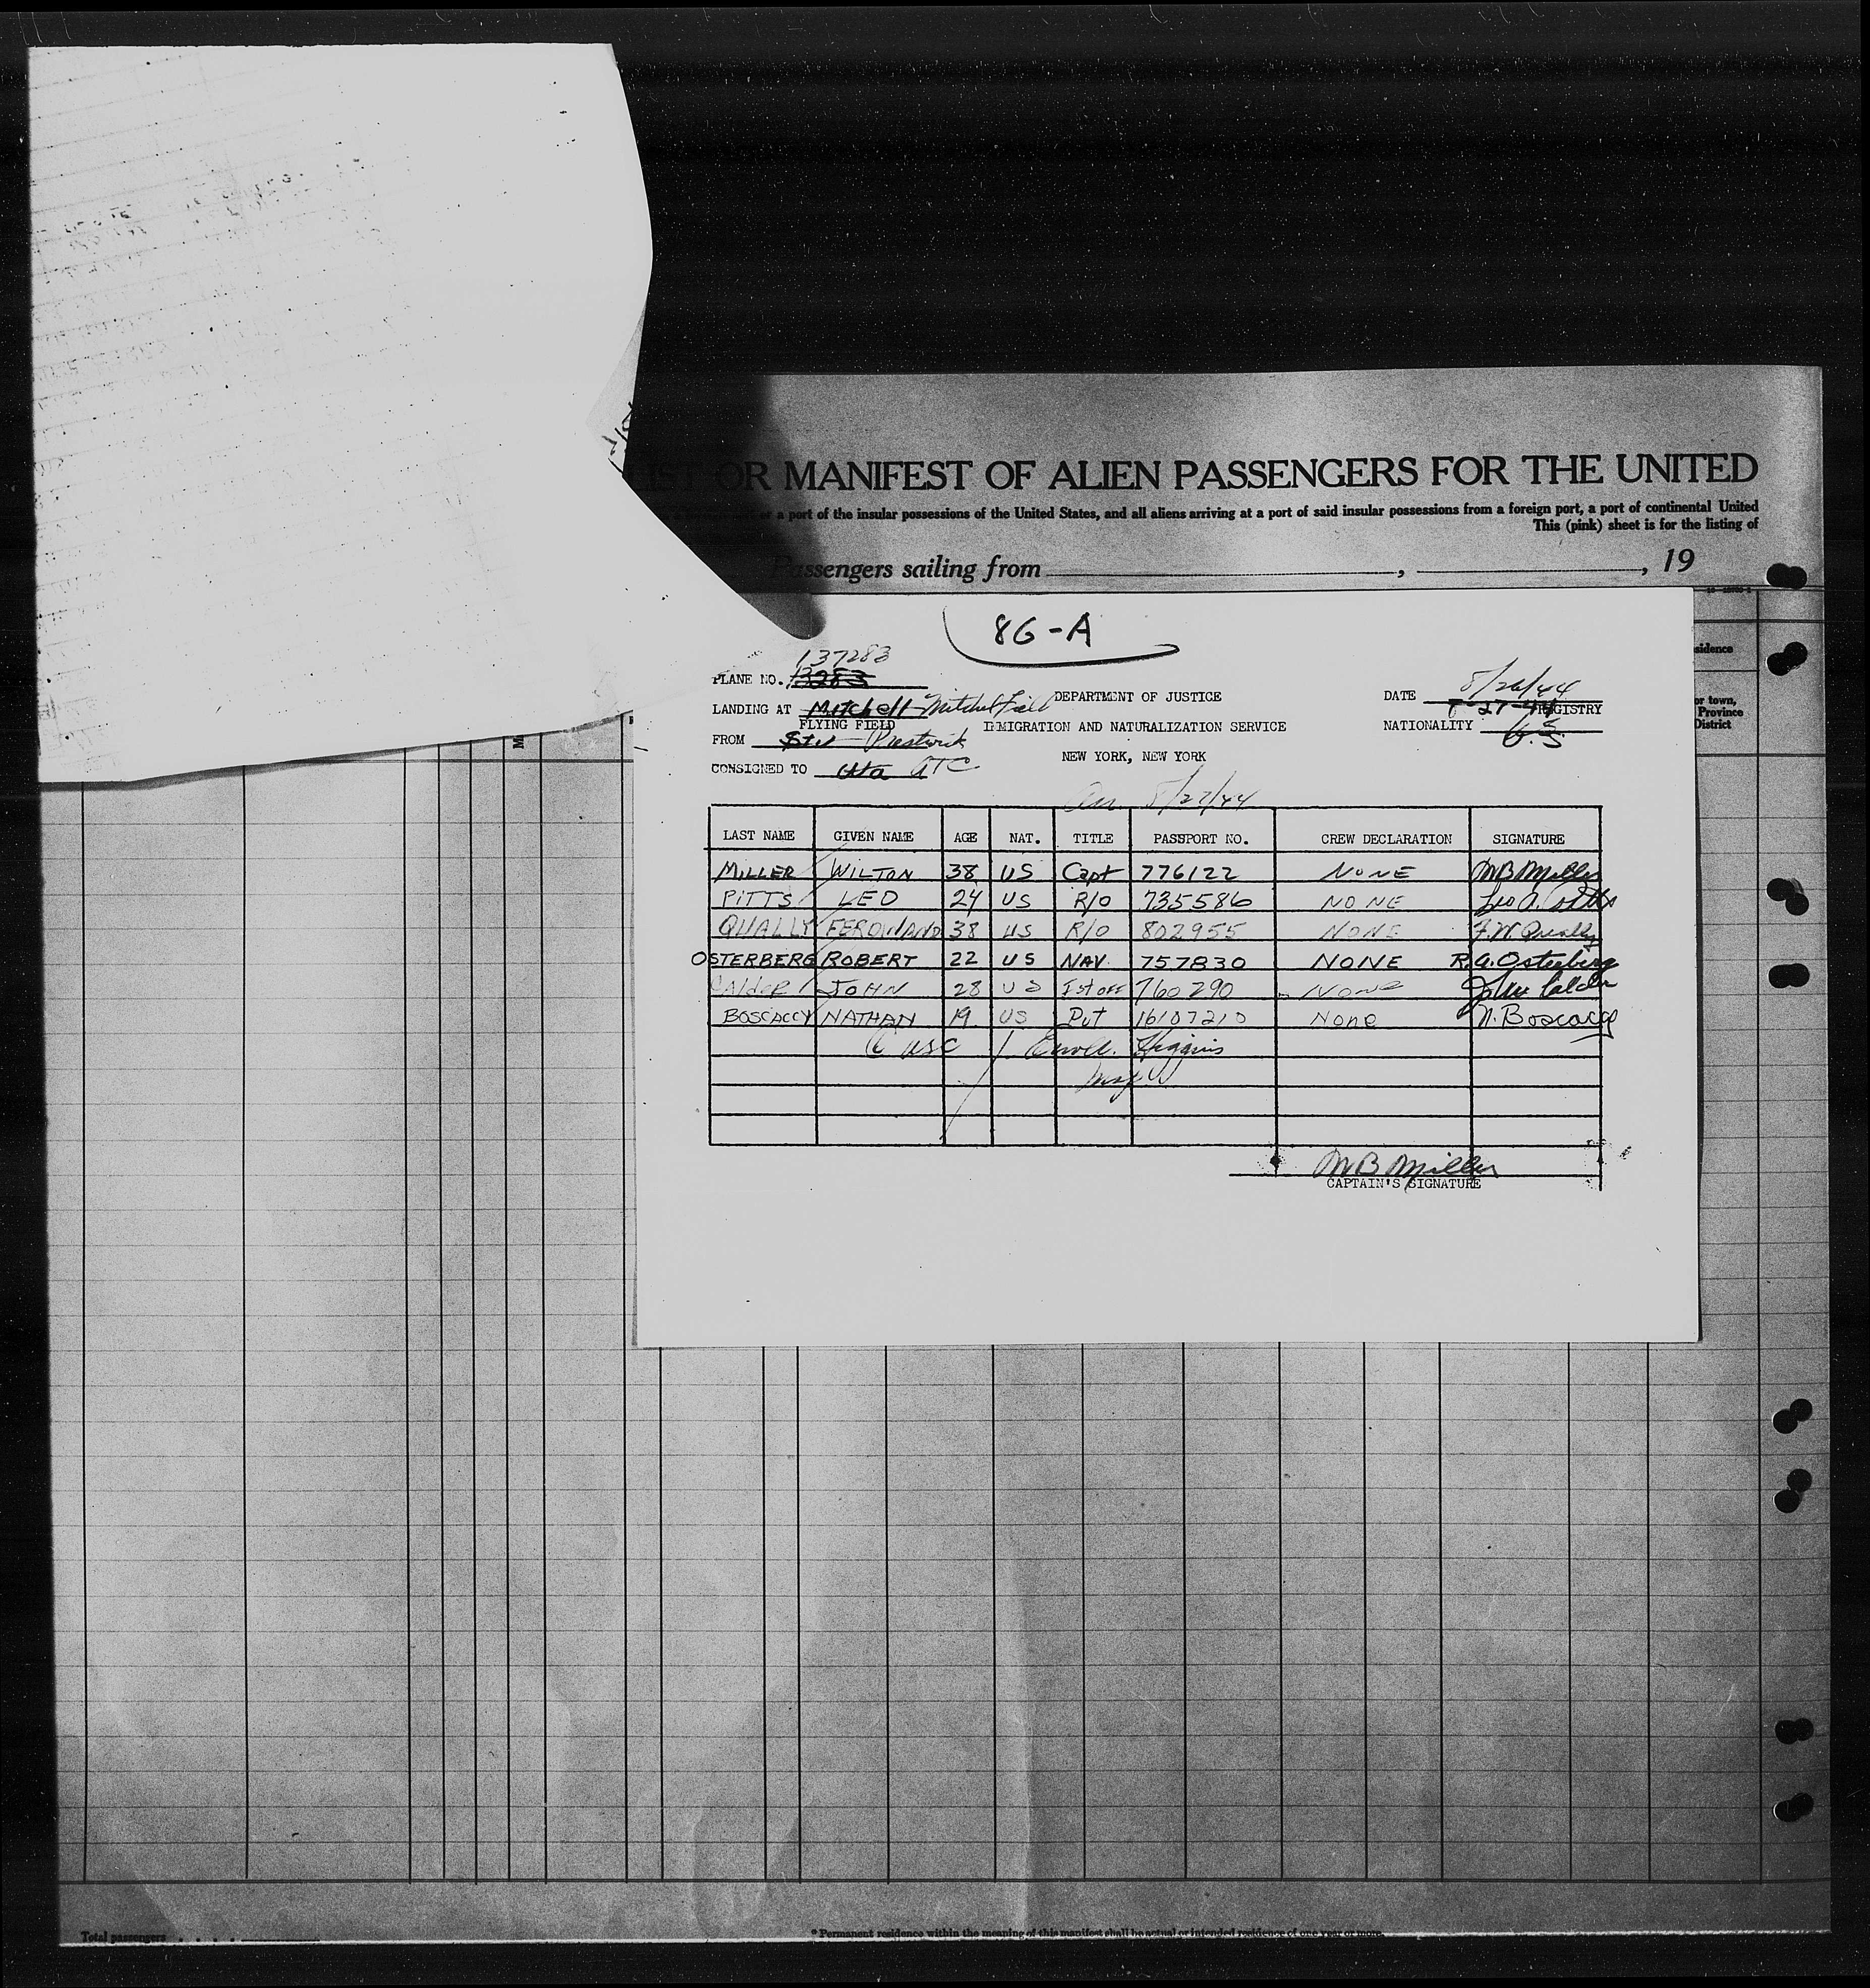 LIST OR MANIFEST OF ALIEN PASSENGERS FOR THE UNITED
or a port of the insular possessions of the United States, and all aliens arriving at a port of said insular possessions from a foreign port, a port of continental United
This (pink) sheet is for the listing of
Passengers sailing from , , 19
86-A
137283
PLANE NO. 13283
LANDING AT Mitchell Mitchel Field DEPARTMENT OF JUSTICE DATE 8/26/44
8-27-44 REGISTRY
FLYING FIELD IMMIGRATION AND NATURALIZATION SERVICE NATIONALITY U.S
FROM Prestwick
NEW YORK, NEW YORK
CONSIGNED TO ATC
8/27/44
LAST NAME GIVEN NAME AGE NAT. TITLE PASSPORT NO. CREW DECLARATION SIGNATURE
MILLER WILTON 38 US Capt 776122 NONE MB Miller
PITTS LEO 24 US R/O 735586 NONE Leo A. Pitts
QUALLY FERDINAND 38 US R/O 802955 NONE F.W Qually
OSTERBERG ROBERT 22 US NAV. 757830 NONE R.A. Osterberg
CAldER JOHN 28 US 1st OFF 760290 NONE John Calder
BOSCACCY NATHAN 19 US Pvt 16107210 None N. Boscaccy
6 USC Higgins
MB Miller
CAPTAIN'S SIGNATURE
sidence
or town,
Province
District
Total passengers
* Permanent residence within the meaning of this manifest shall be actual or intended residence of one year or more.